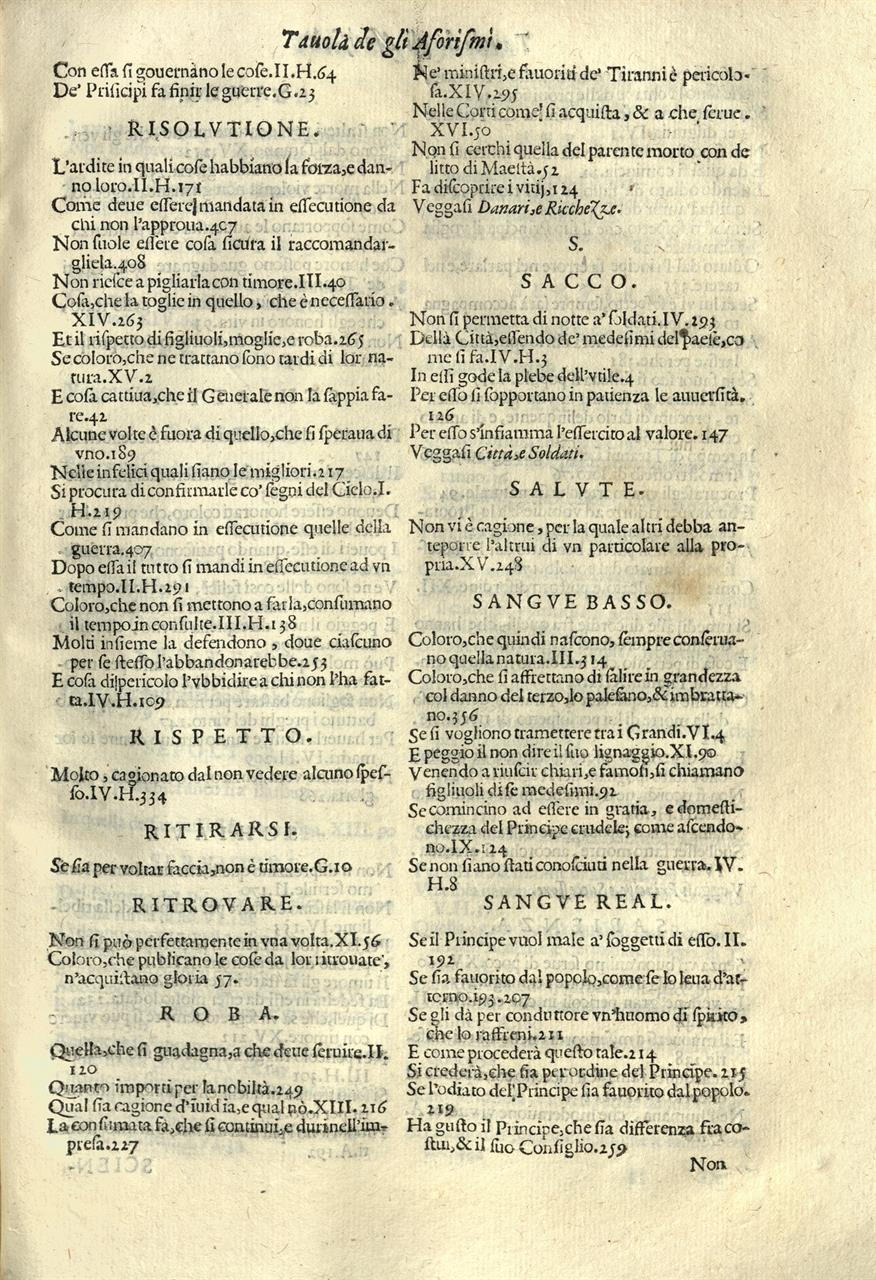 Tauola de gli Aforismi.
Con essa si gouernano le cose.II.H.64
De' Prisicipi fa finir le guerre.G.23
RISOLVTIONE.
L'ardite in quali cose habbiano la forza,e dan-
no loro.II.H.171
Come deue essere mandata in essecutione da
chi non l'approua.407
Non suole essere cosa sicura il raccomandar-
gliela.408
Non riesce a pigliarla con timore.III.40
Cosa,che la toglie in quello, che è necessario.
XIV.263
Et il rispetto di figliuoli,moglie,e roba.265
Se coloro,che ne trattano sono tardi di lor na-
tura.XV.2
E cosa cattiua,che il Generale non la sappia fa-
re.42
Alcune volte è fuora di quello,che si speraua di
vno.189
Nelle infelici quali siano le migliori.217
Si procura di confirmarle co' segni del Cielo.I.
H.219
Come si mandano in essecutione quelle della
guerra.407
Dopo essa il tutto si mandi in essecutione ad vn
tempo.II.H.291
Coloro,che non si mettono a farla,consumano
il tempo in consulte.III.H.138
Molti insieme la defendono, doue ciascuno
per se stesso l'abbandonarebbe.253
E cosa di pericolo l'vbbidire a chi non l'ha fat-
ta.IV.H.109
RISPETTO.
Molto, cagionato dal non vedere alcuno spes-
so.IV.H.334
RITIRARSI.
Se sia per voltar faccia,non è timore.G.10
RITROVARE.
Non si può perfettamente in vna volta.XI.56
Coloro,che publicano le cose da lor ritrouate,
n'acquistano gloria 57.
ROBA.
Quella,che si guadagna,a che deue seruire.II.
120
Quanto importi per la nobiltà.249
Qual sia cagione d'iuidia,e qual nò.XIII.216
La consumata fà,che si continui,e duri nell'im-
presa.227
Ne' ministri,e fauoriti de' Tiranni è pericolo-
sa.XIV.295
Nelle Corti come si acquista, & a che serue.
XVI.50
Non si cerchi quella del parente morto con de
litto di Maestà.52
Fa discoprire i vitij,124
Veggasi Danari,e Ricchezze.
S.
SACCO.
Non si permetta di notte a' soldati.IV.293
Della Città,essendo de' medesimi del paese,co
me si fa.IV.H.3
In essi gode la plebe dell'vtile.4
Per esso si sopportano in patienza le auuersità.
126
Per esso s'infiamma l'essercito al valore.147
Veggasi Città,e Soldati.
SALVTE.
Non vi è cagione, per la quale altri debba an-
teporre l'altrui di vn particolare alla pro-
pria.XV.248
SANGVE BASSO.
Coloro,che quindi nascono, sempre conserua-
no quella natura.III.314
Coloro,che si affrettano di salire in grandezza
col danno del terzo,lo palesano,& imbratta-
no.356
Se si vogliono tramettere tra i Grandi.VI.4
E peggio il non dire il suo lignaggio.XI.90
Venendo a riuscir chiari,e famosi,si chiamano
figliuoli di se medesimi.92
Se comincino ad essere in gratia, e domesti-
chezza del Principe crudele; come ascendo-
no.IX.124
Se non siano stati conosciuti nella guerra.IV.
H.8
SANGVE REAL.
Se il Principe vuol male a' soggetti di esso. II.
192
Se sia fauorito dal popolo,come se lo leua d'at-
torno.193.207
Se gli dà per conduttore vn'huomo di spirito,
che lo raffreni.211
E come procederà questo tale.214
Si crederà,che sia per ordine del Principe. 215
Se l'odiato del Principe sia fauorito dal popolo.
219
Ha gusto il Principe,che sia differenza fra co-
stui,& il suo Consiglio.259
Non